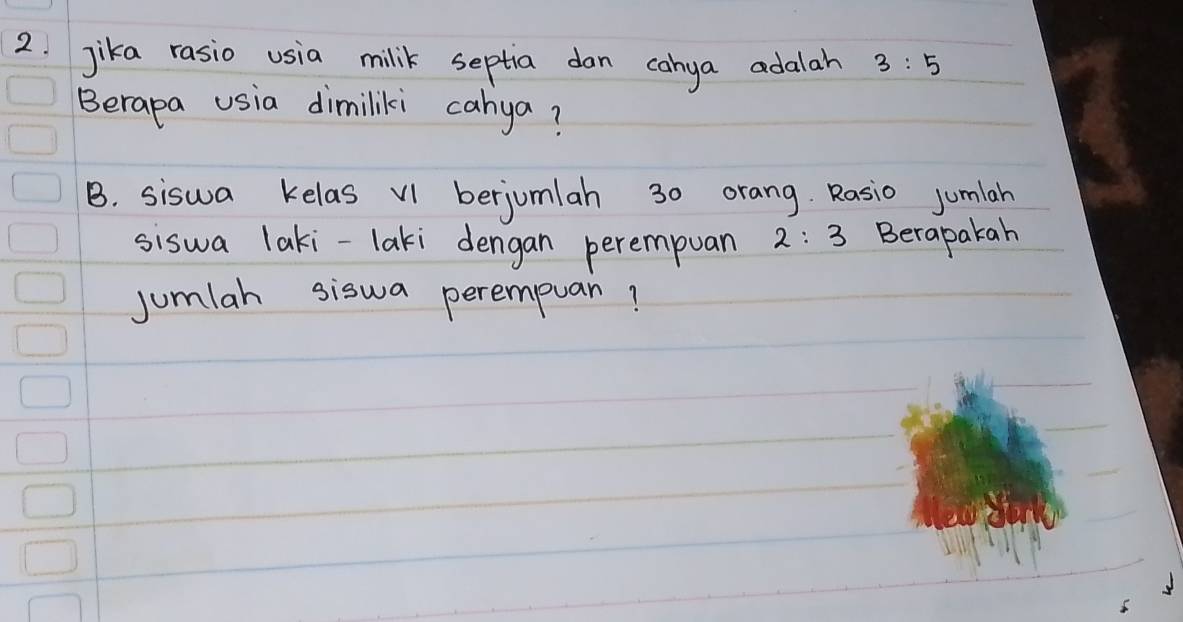 2. Jika rasio usia milik septia dan cahya adalah 3 : 5
Berapa usia dimiliki cahya?
B. siswa kelas VI berjumlah 30 orang. Rasio jumlah
siswa laki - laki dengan perempuan 2 : 3 Berapakah
jumlah siswa perempuan?
New York